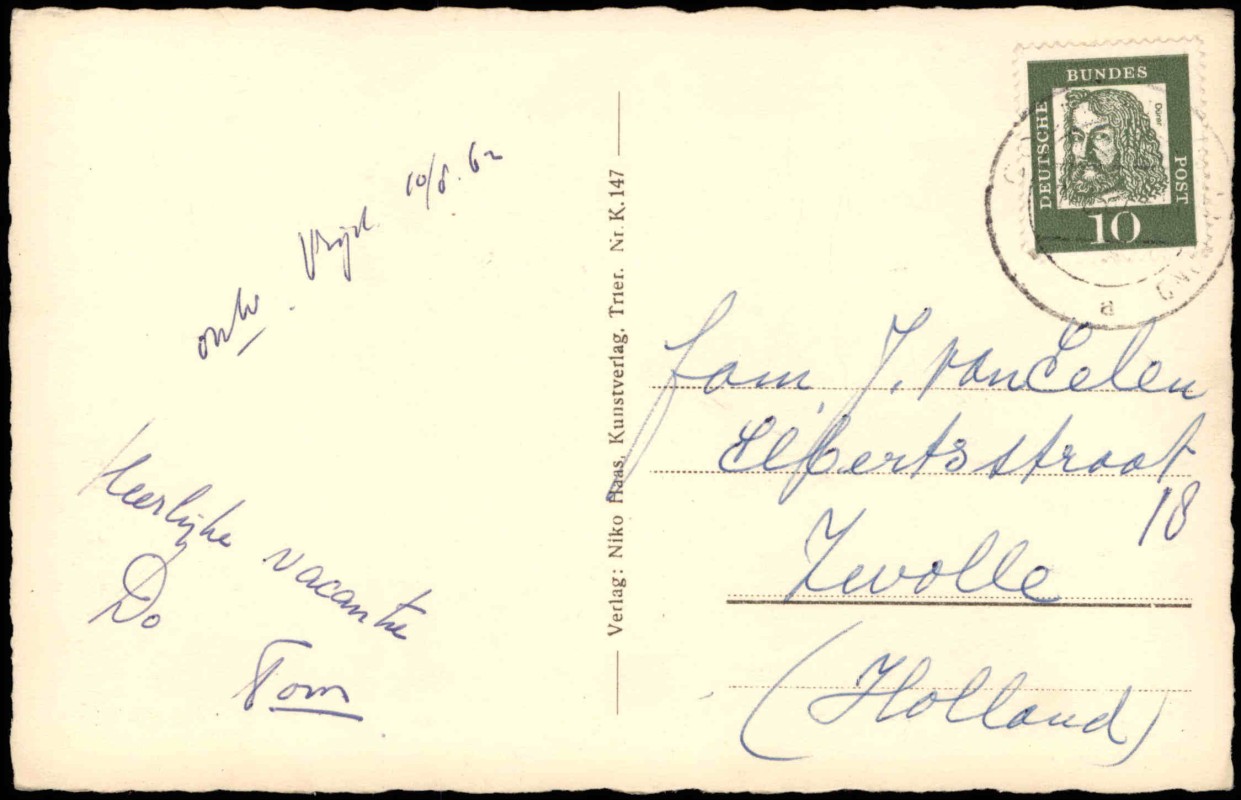 Vrijd. 10/8. 62
Heerlijke vacantie
Do
Tom
Verlag: Niko Haas, Kunstverlag, Trier. Nr. K. 147
DEUTSCHE
BUNDES
POST
Dürer
10
a
Fam. J. van Eelen
Elbertsstraat
18
Zwolle
(Holland)